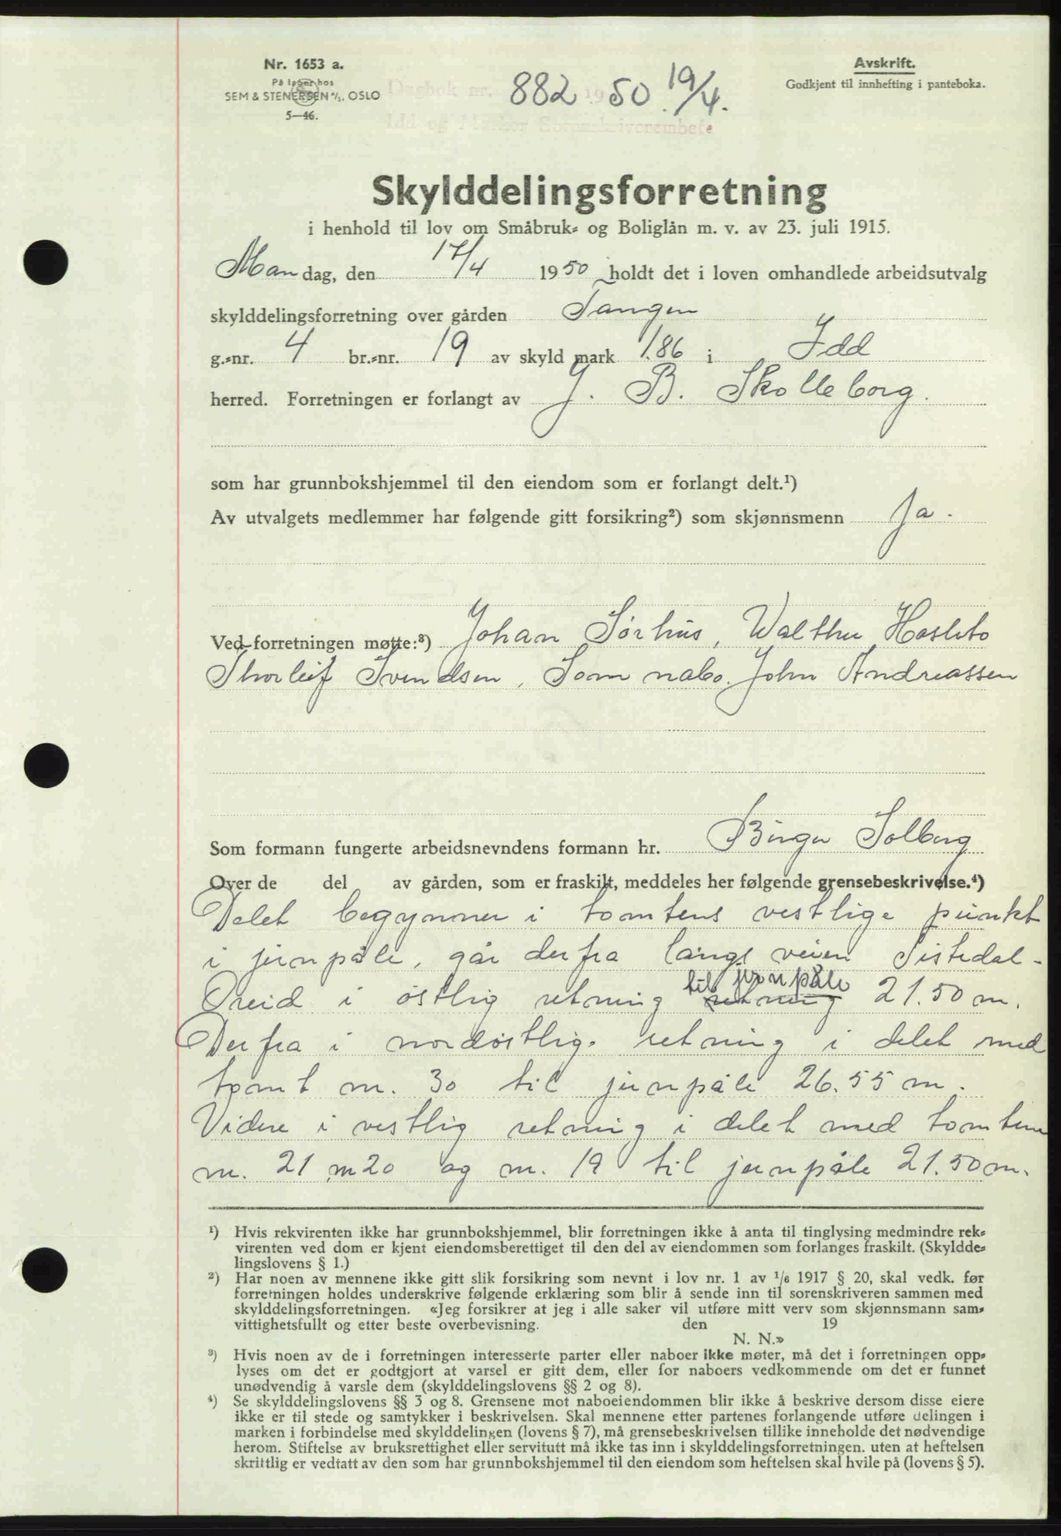 Nr. 1653 a.
På lager hos
SEM & STENERSEN A/S, OSLO
5—46.
Dagbok nr. 882 19 50 19/4.
Idd og Marker Sorenskriverembete
Avskrift.
Godkjent til innhefting i panteboka.
Skylddelingsforretning
i henhold til lov om Småbruk- og Boliglån m. v. av 23. juli 1915.
Man dag, den 17/4 1950 holdt det i loven omhandlede arbeidsutvalg
skylddelingsforretning over gården Tangen
g.-nr. 4 br.-nr. 19 av skyld mark 1.86 i Idd
herred. Forretningen er forlangt av J. B. Skolleborg.
som har grunnbokshjemmel til den eiendom som er forlangt delt.¹)
Av utvalgets medlemmer har følgende gitt forsikring²) som skjønnsmenn Ja.
Ved forretningen møtte:³) Johan Sørhus, Walther Hasleto
Thorleif Svendsen, Som nabo. John Andreassen
Som formann fungerte arbeidsnevndens formann hr. Birger Solberg
Over de del av gården, som er fraskilt, meddeles her følgende grensebeskrivelse.⁴)
Delet begynner i tomtens vestlige punkt
i jernpåle, går derfra langs veien Tistedal-
Öreid i østlig retning retning til jernpåle 21.50 m.
Derfra i nordøstlig. retning i delet med
tomt m. 30 til jernpåle 26.55 m.
Videre i vestlig retning i delet med tomtene
m. 21 m 20 og m. 19 til jernpåle 21.50 m.
¹) Hvis rekvirenten ikke har grunnbokshjemmel, blir forretningen ikke å anta til tinglysing medmindre rek-
virenten ved dom er kjent eiendomsberettiget til den del av eiendommen som forlanges fraskilt. (Skyldde-
lingslovens § 1.)
²) Har noen av mennene ikke gitt slik forsikring som nevnt i lov nr. 1 av 1/6 1917 § 20, skal vedk. før
forretningen holdes underskrive følgende erklæring som blir å sende inn til sorenskriveren sammen med
skylddelingsforretningen. «Jeg forsikrer at jeg i alle saker vil utføre mitt verv som skjønnsmann sam-
vittighetsfullt og etter beste overbevisning. den 19
N. N.»
³) Hvis noen av de i forretningen interesserte parter eller naboer ikke møter, må det i forretningen opp-
lyses om det er godtgjort at varsel er gitt dem, eller for naboers vedkommende om det er funnet
unødvendig å varsle dem (skylddelingslovens §§ 2 og 8).
⁴) Se skylddelingslovens §§ 3 og 8. Grensene mot naboeiendommen blir ikke å beskrive dersom disse eiere
ikke er til stede og samtykker i beskrivelsen. Skal mennene etter partenes forlangende utføre delingen i
marken i forbindelse med skylddelingen (lovens § 7), må grensebeskrivelsen tillike inneholde det nødvendige
herom. Stiftelse av bruksrettighet eller servitutt må ikke tas inn i skylddelingsforretningen. uten at heftelsen
skriftlig er vedtatt av den som har grunnbokshjemmel til den eiendom som heftelsen skal hvile på (lovens § 5).